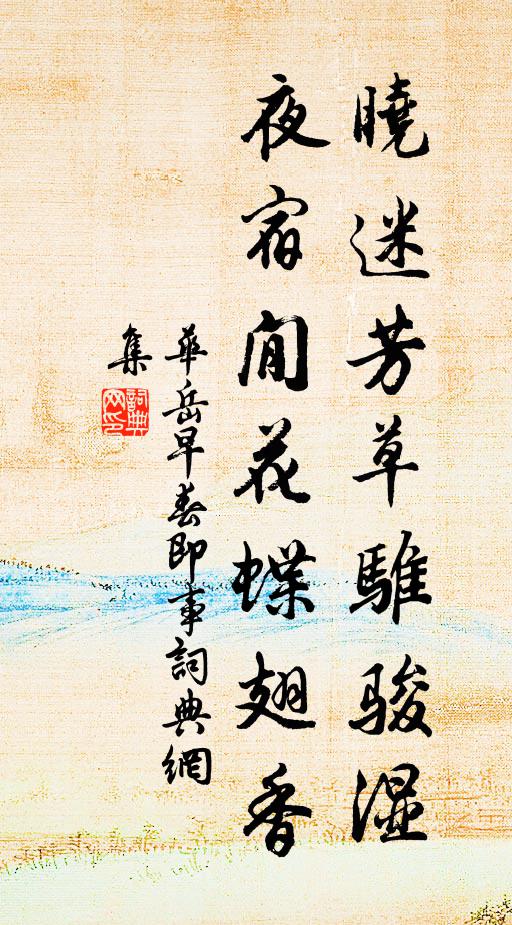 曉迷芳草騅駿湿
夜宿閒花蝶翅香
華岳早春即事詞典網
集
詞典
网印